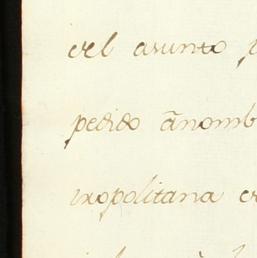 del asunto p
pedido ānomb
tropolitana e